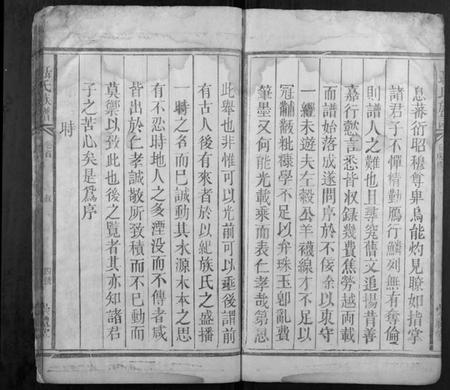 息蕃衍昭穆尊卑烏能灼見瞭如指掌
諸君子不憚情勤鴈行鱗列無有奪倫
則譜人之難也且尋究舊文追揚昔善
嘉行懿言悉皆收錄幾費焦勞越兩載
而譜始落成遂問序於不佞余以東守
一經未遊夫左穀公羊襪線才不足以
冠黼黻秕糠學不足以弁珠玉郎亂費
筆墨又何能光載乘而表仁孝哉第思
此舉也非惟可以光前可以垂後謂前
有古人後有來者於以紀族氏之盛播
一時之名而已誠動其水源木本之思
有不忍時地人之多湮没而不傳者咸
皆出於仁孝誠敬所致積而不已動而
莫禦以致此也後之覽者其亦知諸君
子之苦心矣是為序
時
氏族譜
卷首
敘